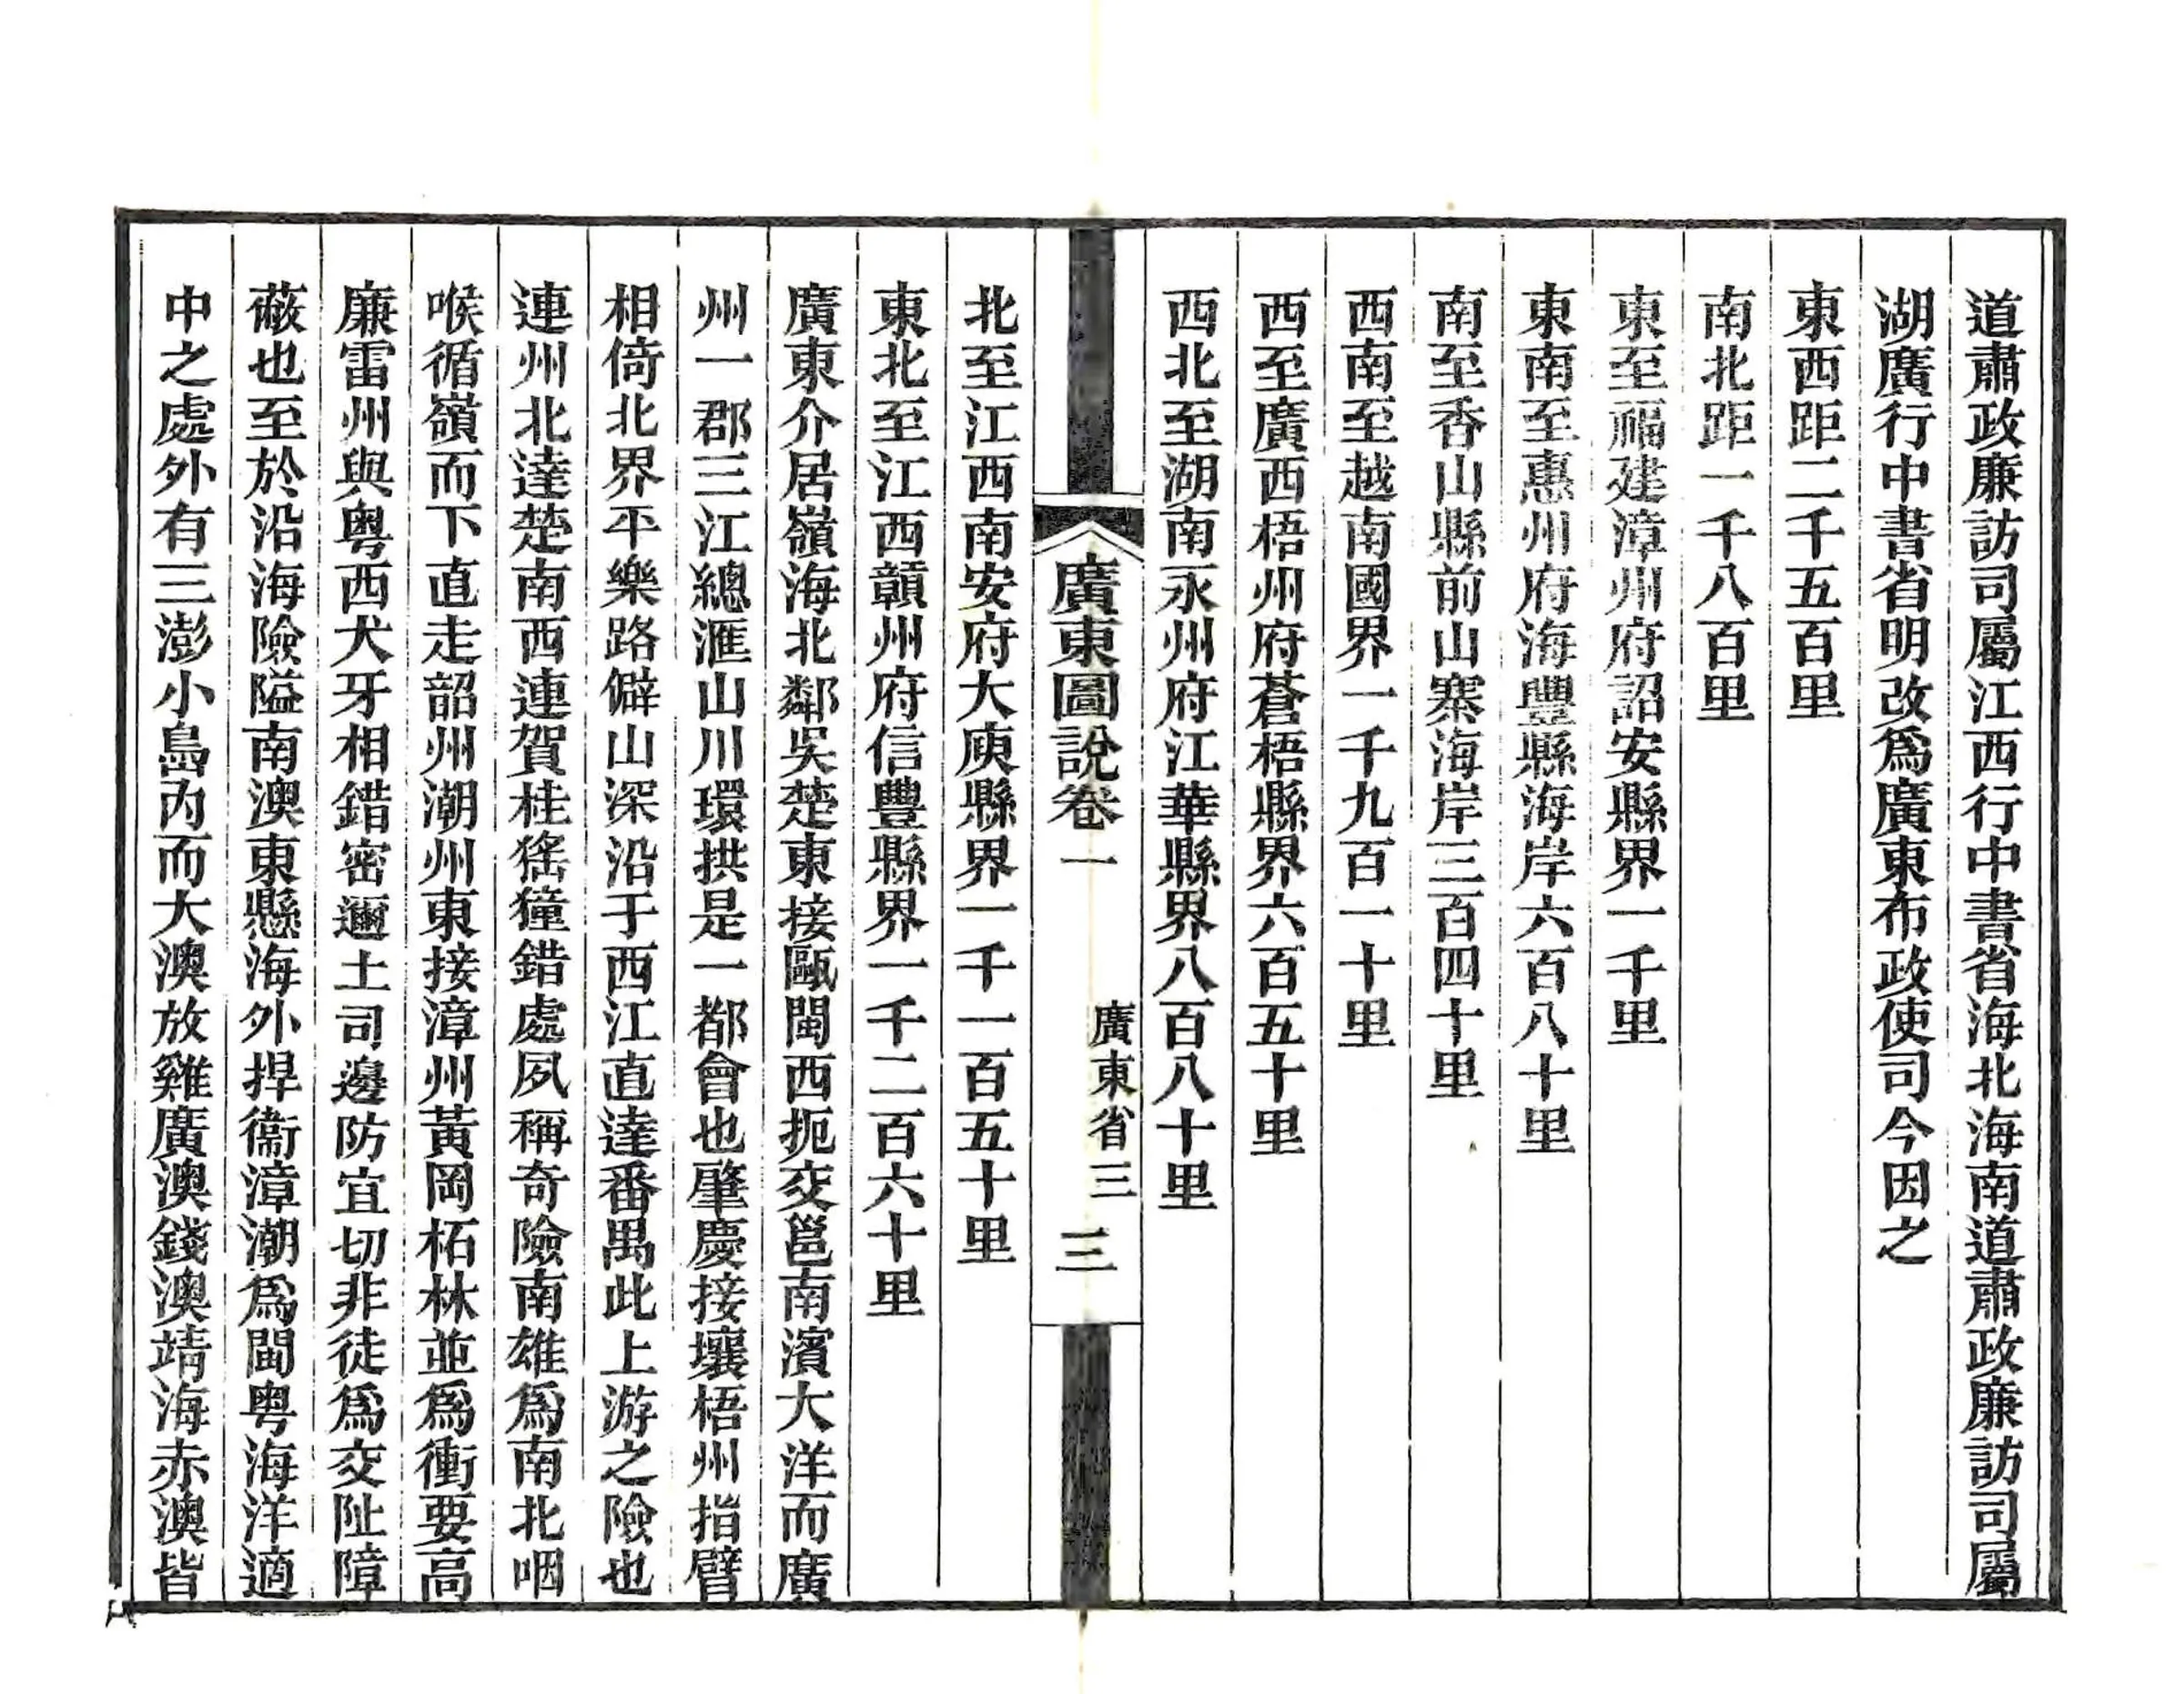 道肅政廉訪司屬江西行中書省海北海南道肅政廉訪司屬
湖廣行中書省明改爲廣東布政使司今因之
東西距二千五百里
南北距一千八百里
東至福建漳州府詔安縣界一千里
東南至惠州府海豐縣海岸六百八十里
南至香山縣前山寨海岸三百四十里
西南至越南國界一千九百一十里
西至廣西梧州府蒼梧縣界六百五十里
西北至湖南永州府江華縣界八百八十里
廣東圖說卷一
廣東省三
三
北至江西南安府大庾縣界一千一百五十里
東北至江西贛州府信豐縣界一千二百六十里
廣東介居嶺海北鄰吳楚東接甌閩西扼交邕南濱大洋而廣
州一郡三江總滙山川環拱是一都會也肇慶接壤梧州指臂
相倚北界平樂路僻山深沿于西江直達番禺此上游之險也
連州北達楚南西連賀桂猺獞錯處夙稱奇險南雄爲南北咽
喉循嶺而下直走韶州潮州東接漳州黃岡柘林並爲衝要高
廉雷州與粵西犬牙相錯密邇土司邊防宜切非徒爲交阯障
蔽也至於沿海險隘南澳東懸海外捍衞漳潮爲閩粵海洋適
中之處外有三澎小島內而大澳放雞廣澳錢澳靖海赤澳皆